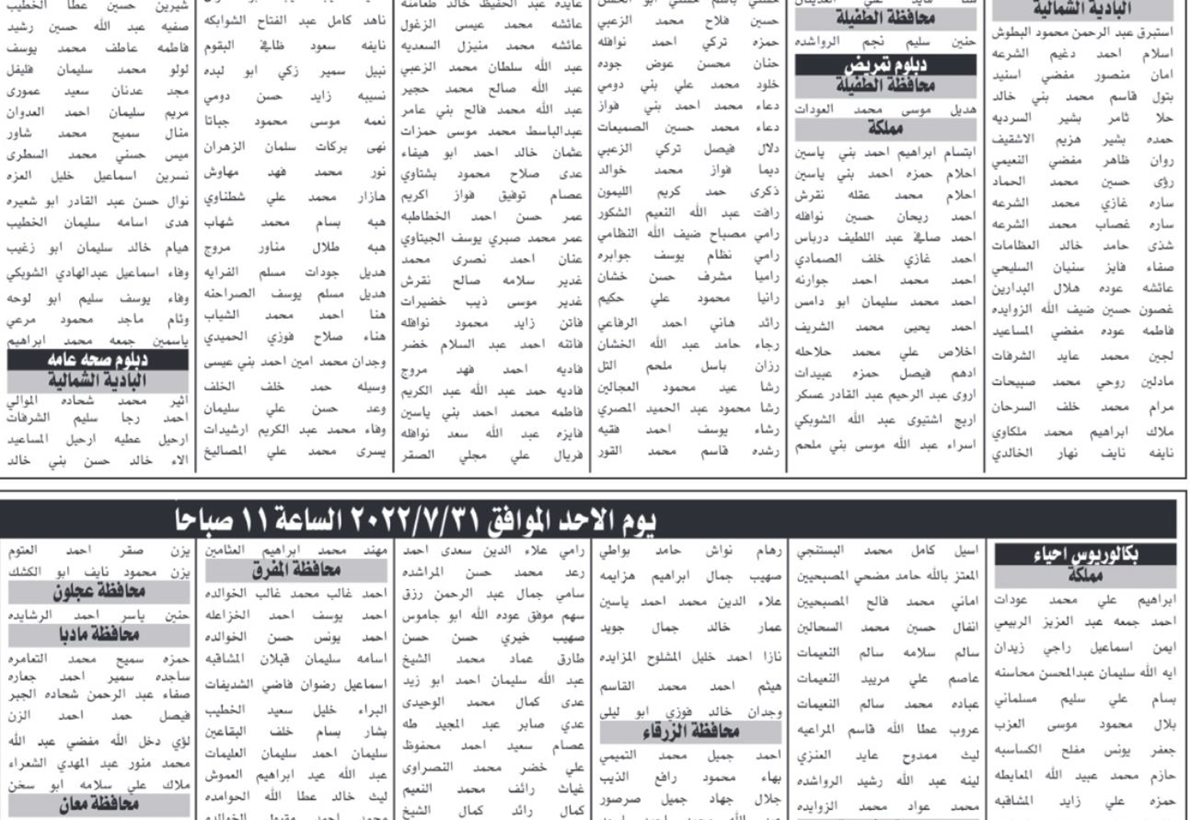 البادية الشمالية
استبرق عبد الرحمن محمود البطوش
اسلام احمد دغيم الشرعه
امان منصور مفضي اسنيد
بتول قاسم محمد بني خالد
حلا ثامر بشير السرديه
حمده بشير هزيم الاشقيف
روان ظاهر مفضي النعيمي
رؤى حسين محمد الحماد
ساره غازي محمد الشرعه
ساره غصاب محمد الشرعه
شذى حامد خالد العظامات
صفاء فايز سنيان السليحي
عائشه عوده هلال البدارين
غصون حسين ضيف الله الزوايده
فاطمه عوده مفضي المساعيد
لجين محمد عايد الشرفات
مادلين روحي محمد صبيحات
مرام محمد خلف السرحان
ملاك ابراهيم محمد ملكاوي
نايفه نايف نهار الخالدي
محافظة الطفيلة
حنين سليم نجم الرواشده
دبلوم تمريض
محافظة الطفيلة
هديل موسى محمد العودات
مملكة
ابتسام ابراهيم احمد بني ياسين
احلام حمزه احمد بني ياسين
احلام محمد عقله نقرش
احمد ريحان حسين نوافله
احمد صافي عبد اللطيف درباس
احمد غازي خلف الصمادي
احمد محمد احمد جوارنه
احمد محمد سليمان ابو دامس
احمد يحيى محمد الشريف
اخلاص علي محمد حلاحله
ادهم فيصل حمزه عبيدات
اروى عبد الرحيم عبد القادر عسكر
اريج اشتيوى عبد الله الشوبكي
اسراء عبد الله موسى بني ملحم
حسين فلاح محمد الزعبي
حمزه تركي احمد نوافله
حنان محسن عوض جوده
خلود محمد علي بني دومي
دعاء محمد احمد بني فواز
دعاء محمد حسين الصميعات
دلال فيصل تركي الزعبي
ديما فواز محمد خوالد
ذكرى حمد كريم الليمون
رافت عبد الله النعيم الشكور
رامي مصباح ضيف الله النظامي
رامي نظام يوسف جوابره
راميا مشرف حسن خشان
رانيا محمود علي حكيم
رائد هاني احمد الرفاعي
رجاء حامد عبد الله الخشان
رزان باسل ملحم التل
رشا عيد محمود العجالين
رشا محمود عبد الحميد المصري
رشاء يوسف احمد فقيه
رشده قاسم محمد القور
عايده عبد الحفيظ خالد طعامنه
عائشه محمد عيسى الزغول
عائشه محمد منيزل السعديه
عبد الله سلطان محمد الزعبي
عبد الله صالح محمد حجير
عبد الله محمد فالح بني عامر
عبدالباسط محمد موسى حمزات
عثمان خالد احمد ابو هيفاء
عدي صلاح محمود بشتاوي
عصام توفيق فواز اكريم
عمر حسن احمد الخطاطبه
عمر محمد صبري يوسف الجيتاوي
عنان احمد نصري محمد
غدير سلامه صالح نقرش
غدير موسى ذيب خضيرات
فاتن زايد محمود نوافله
فاتنه احمد عبد السلام خضر
فاديه احمد فهد مروج
فاديه حمد عبد الله عبد الكريم
فاطمه محمد احمد بني ياسين
فايزه عبد الله سعد نوافله
فريال علي مجلي الصقر
ناهد كامل عبد الفتاح الشوابكه
نايفه سعود ظافي البقوم
نبيل سمير زكي ابو لبده
نسيبه زايد حسن دومي
نعمه موسى محمود جباتا
نهى بركات سلمان الزهران
نور محمد فهد مهاوش
هازار محمد علي شطناوي
هبه بسام محمد شهاب
هبه طلال مناور مروج
هديل جودات مسلم القرايه
هديل مسلم يوسف الصراحنه
هنا احمد محمد الشياب
هناء صلاح فوزي الحميدي
وجدان محمد امين احمد بني عيسى
وسيله حمد خلف الخلف
وعد حسن علي سليمان
وفاء محمد عبد الكريم ارشيدات
يسرى محمد علي المصاليخ
شيرين حسين عطا الخطيب
صفيه عبد الله حسين رشيد
فاطمه عاطف محمد يوسف
لولو محمد سليمان فليفل
مجد عدنان سعيد عموري
مريم سليمان احمد العدوان
منال سميح محمد شاور
ميس حسني محمد السطري
نسرين اسماعيل خليل العزه
نوال حسن عبد القادر ابو شعيره
هدى اسامه سليمان الخطيب
هيام خالد سليمان ابو زغيب
وفاء اسماعيل عبدالهادي الشوبكي
وفاء يوسف سليم ابو لوحه
وئام ماجد محمود مرعي
ياسمين جمعه محمد ابراهيم
دبلوم صحه عامه
البادية الشمالية
اثير محمد شحاده الموالي
احمد رجا سليم الشرفات
ارحيل عطيه ارحيل المساعيد
الاء خالد حسن بني خالد
يوم الاحد الموافق ٢٠٢٢/٧/٣١ الساعة ١١ صباحاً
بكالوريوس احياء
مملكة
ابراهيم علي محمد عودات
احمد جمعه عبد العزيز الربيعي
ايمن اسماعيل راجي زيدان
ايه الله سليمان عبدالمحسن محاسنه
بسام علي سليم مسلماني
بلال محمود موسى العزب
جعفر يونس مفلح الكساسبه
حازم محمد عبيد الله المعايطه
حمزه علي زايد المشاقبه
اسيل كامل محمد البستنجي
المعتز بالله حامد مضحي المصبحيين
اماني محمد فالح المصبحيين
انفال حسين محمد السحالين
سالم سلامه سالم النعيمات
عاصم علي مرييد النعيمات
عباده محمد سالم النعيمات
عروب عطا الله قاسم المراعيه
ليث ممدوح عايد العنزي
لينه عبد الله رشيد الرواشده
محمد عواد محمد الزوايده
رهام نواش حامد بواطي
صهيب جمال ابراهيم هزايمه
علاء الدين محمد احمد ياسين
عمار خالد جمال جويد
نازا احمد خليل المشلوح المزايده
هيثم احمد محمد القاسم
وجدان خالد فوزي ابو ليلى
محافظة الزرقاء
احمد جميل محمد التميمي
بهاء محمود رافع الذيب
جلال جهاد جميل صرصور
رامي علاء الدين سعدي احمد
رعد محمد حسن المراشده
سامي جمال عبد الرحمن رزق
سهم موفق عوده الله ابو جاموس
صهيب خيري حسن حسن
طارق عماد محمد الشيخ
عبد الله سليمان احمد ابو زيد
عدي كمال محمد الوحيدي
عدي صابر عبد المجيد طه
عصام سعيد احمد محفوظ
علي خضر محمد النصراوي
غياث رائف محمد النعيم
كمال رائد كمال الشيخ
مهند محمد ابراهيم العثامين
محافظة المفرق
احمد غالب محمد غالب الخوالده
احمد يوسف احمد الخزاعله
احمد يونس حسن الخوالده
اسامه سليمان قبلان المشاقبه
اسماعيل رضوان فاضي الشديفات
البراء خليل سعيد الخطيب
بشار بسام خلف البقاعين
سليمان احمد سليمان العليمات
عبد الله عيد ابراهيم العموش
ليث خالد عطا الله الحوامده
يزن صقر احمد العتوم
يزن محمود نايف ابو الكشك
محافظة عجلون
حنين ياسر احمد الرشايده
محافظة مادبا
حمزه سميح محمد التعامره
ساجده سمير احمد جعاره
صفاء عبد الرحمن شحاده الجبر
فيصل حمد احمد الزن
لؤي دخل الله مفضي عبد الله
محمد منور عبد المهدي الشعراء
ملاك علي سلامه ابو سخن
محافظة معان